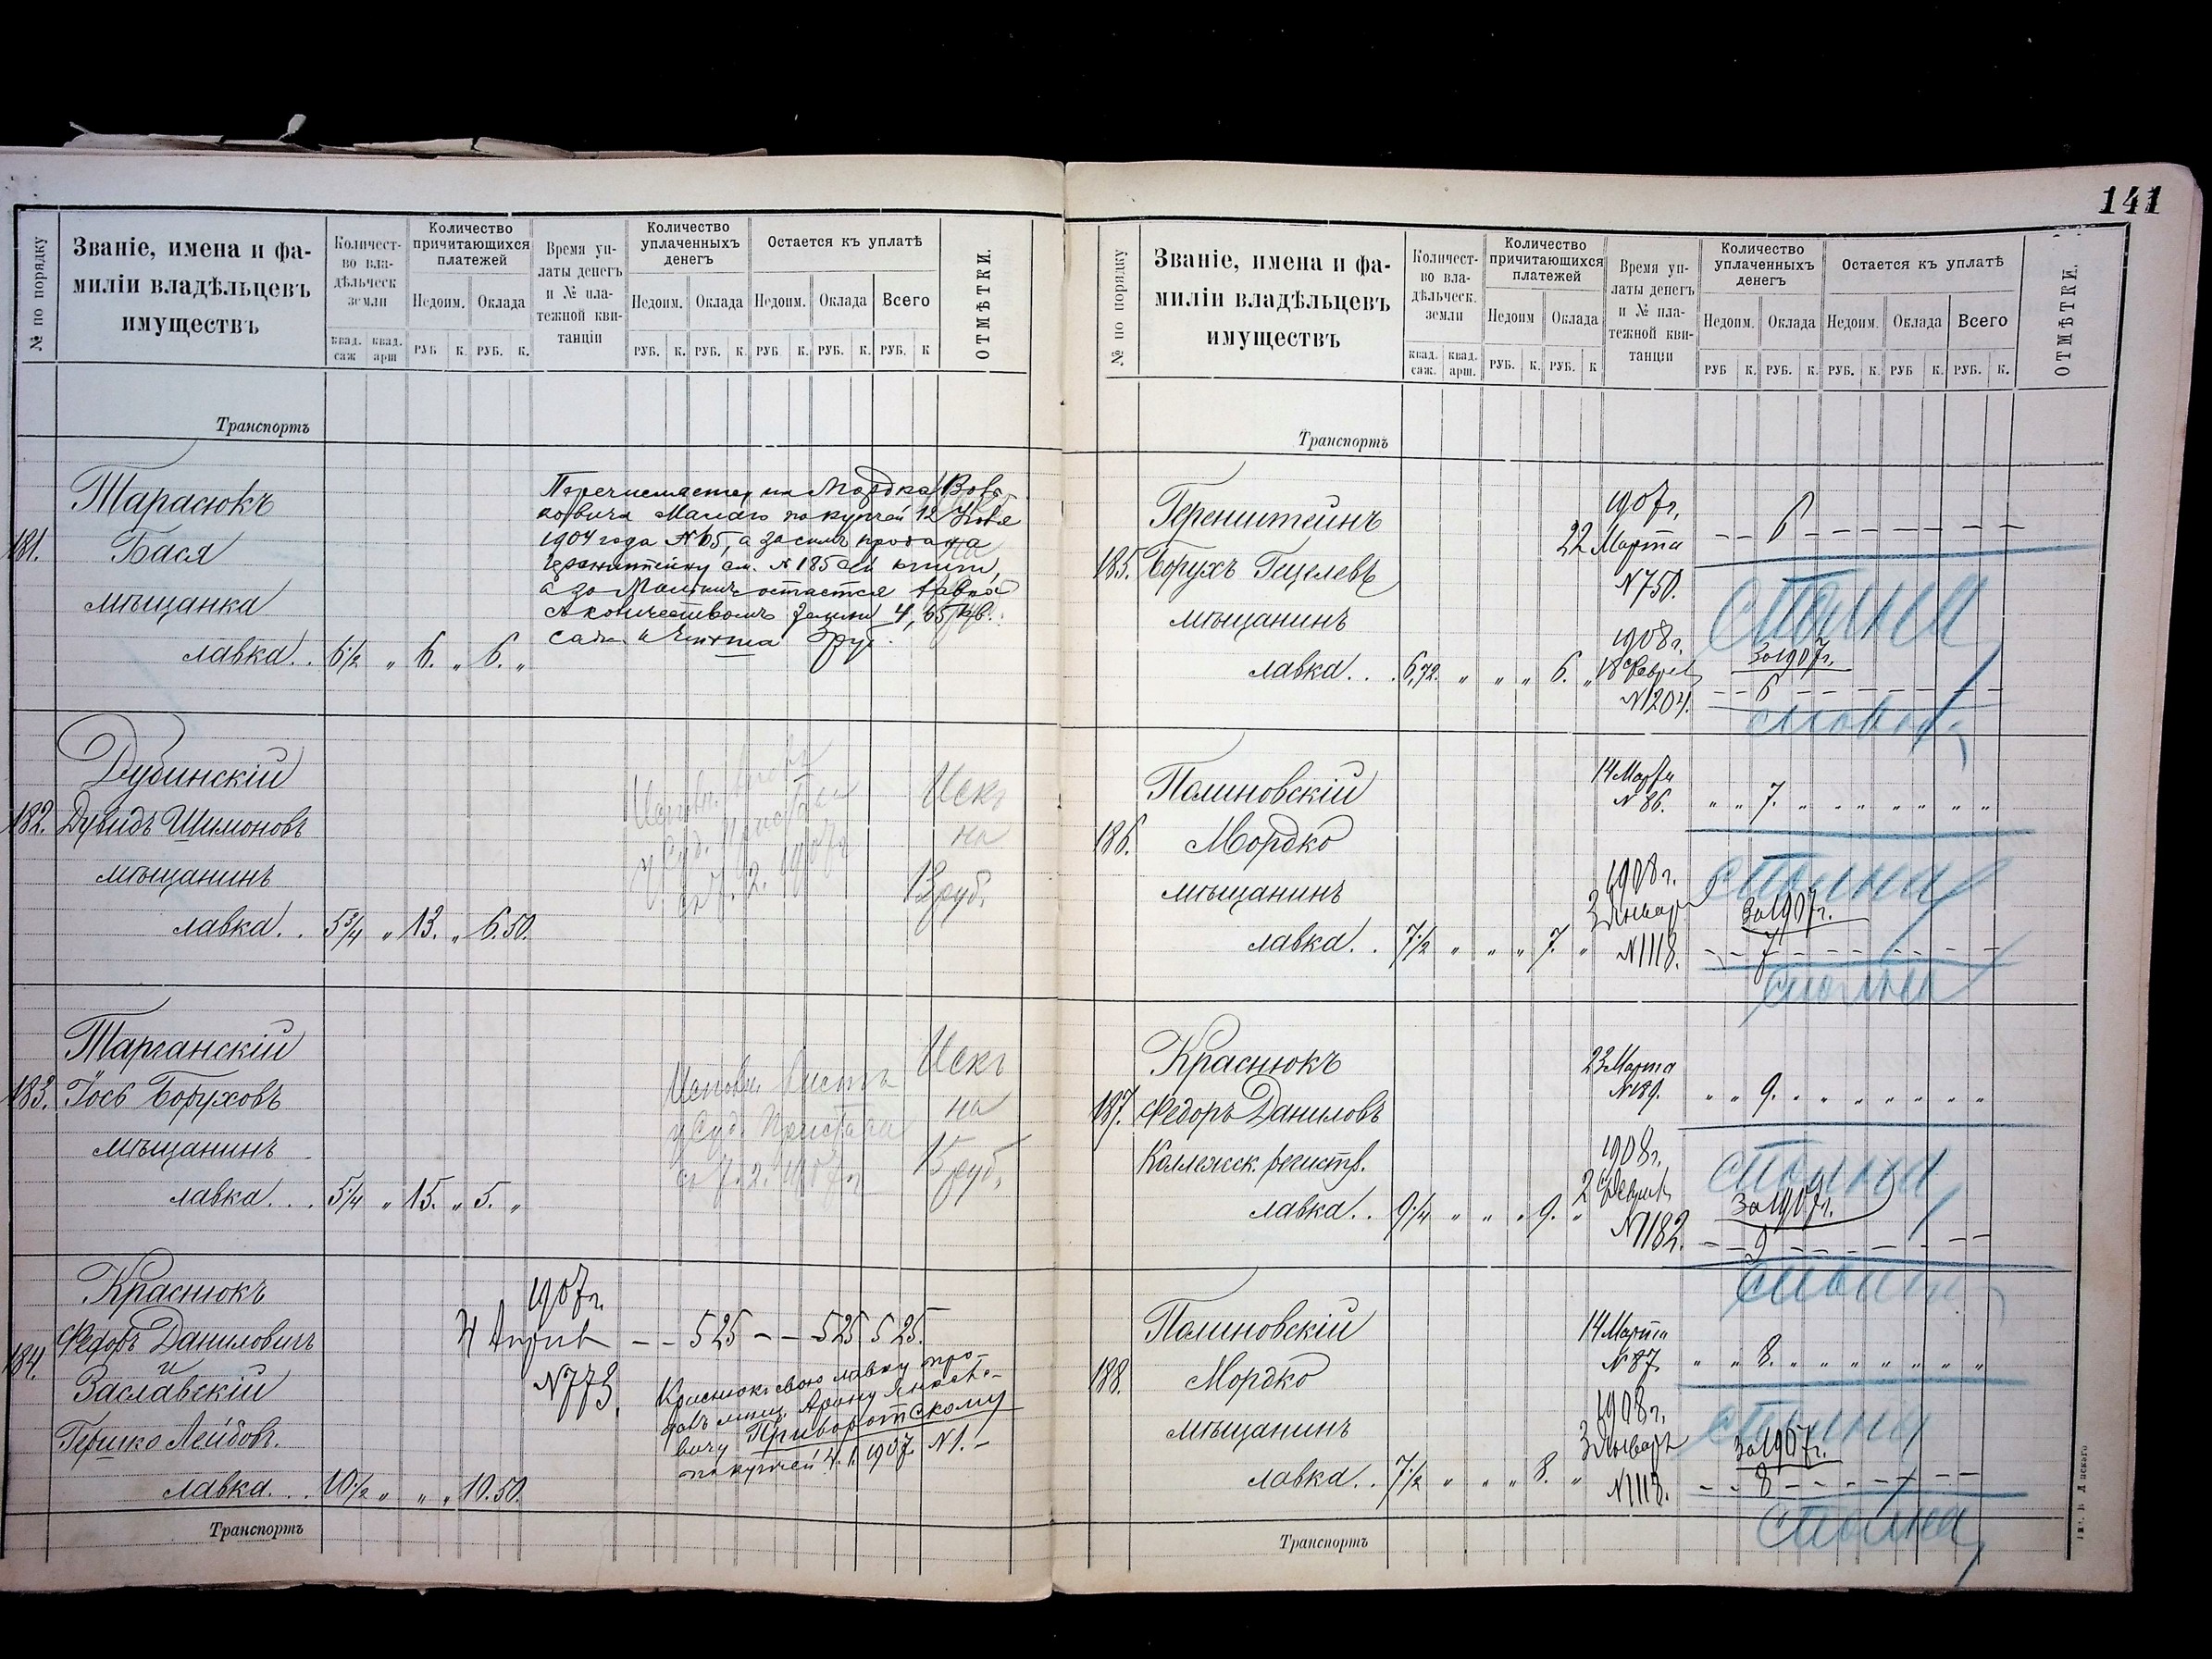 141
№ по порядку
Званіе, имена и фа-
миліи владѣльцевъ
имуществъ
Количест-
во вла-
дѣльческ
земли
квад. саж квад. арш
Количество
причитающихся
платежей
Недоим. Оклада
РУБ К. РУБ. К.
Время уп-
латы денегъ
и № пла-
тежной кви-
танціи
Количество
уплаченныхъ
денегъ
Недоим. Оклада
РУБ. К. РУБ. К.
Остается къ уплатѣ
Недоим. Оклада Всего
РУБ К. РУБ. К. РУБ. К
ОТМѢТКИ.
Транспортъ
Тарасюкъ
181. Бася
мѣщанка
лавка. . 6½ „ 6. „ 6. „
Перечисляется на Мордка Вов-
ковича Малаго по купчей 12
1904 года № 65, а засимъ продана
см. № 185 сей книги,
а за остается лавка
съ количествомъ земли 4,65 кв.
саж. и 3 руб.
Дубинскій
182. Дувидъ Шимоновъ
мѣщанинъ
лавка. . 5¾ „ 13. „ 6.50.
Исполн. листъ
у Суд. Пристава
съ 7. 2. 1907 г.
Искъ
на
13 руб.
Тарганскій
183. Іосъ Боруховъ
мѣщанинъ
лавка. . . 5¼ „ 15. „ 5. „
Исполн. листъ
у Суд. Пристава
съ 7. 2. 1907 г.
Искъ
на
15 руб.
Краснюкъ
184. Федоръ Даниловичъ
и
Заславскій
Гершко Лейбовъ.
лавка. . . 10½ „ „ „ 10.50.
1907 г.
4 Апрѣля — — 5 25 — — 5 25 5 25.
№ 773.
Краснюкъ свою лавку про-
далъ мѣщ. Арону
вичу Приворотскому
по купчей 4. 1. 1907 № 1. —
Транспортъ
№ по порядку
Званіе, имена и фа-
миліи владѣльцевъ
имуществъ
Количест-
во вла-
дѣльческ.
земли
квад. саж. квад. арш.
Количество
причитающихся
платежей
Недоим Оклада
РУБ. К. РУБ. К
Время уп-
латы денегъ
и № пла-
тежной кви-
танціи
Количество
уплаченныхъ
денегъ
Недоим. Оклада
РУБ К. РУБ. К.
Остается къ уплатѣ
Недоим. Оклада Всего
РУБ. К. РУБ К. РУБ. К.
ОТМѢТКИ.
Транспортъ
Геренштейнъ
185. Борухъ Гецелевъ
мѣщанинъ
лавка. . . 6,72. „ „ „ 6. „
1907 г.
22 Марта — — 6 — — — — — — —
№ 750.
сполна
1908 г.
18 Февраля За 1907 г.
№ 1204. — — 6 — — — — — — —
сполна
Палиновскій
186. Мордко
мѣщанинъ
лавка. . 7½ „ „ „ 7. „
14 Марта
№ 86. „ „ 7. „ „ „ „ „ „ „
сполна
1908 г.
3 Января За 1907 г.
№ 1118. — — 7 — — — — — — —
сполна
Краснюкъ
187. Федоръ Даниловъ
Коллежск. регистр.
лавка. . 9¼ „ „ „ 9. „
23 Марта
№ 189. „ „ 9. „ „ „ „ „ „ „
сполна
1908 г.
2 Февраля За 1907 г.
№ 1182. — — 9 — — — — — — —
сполна
Палиновскій
188. Мордко
мѣщанинъ
лавка. . 7½ „ „ „ 8. „
14 Марта
№ 87. „ „ 8. „ „ „ „ „ „ „
сполна
1908 г.
3 Января За 1907 г.
№ 1118. — — 8 — — — — — — —
сполна
Транспортъ